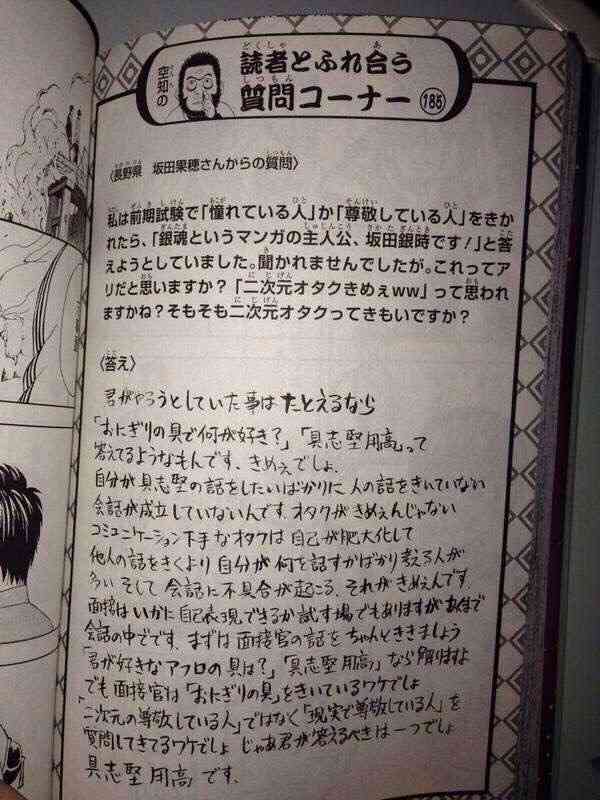 空知の
読者とふれ合う
質問コーナー 185
〈長野県　坂田果穂さんからの質問〉
私は前期試験で「憧れている人」か「尊敬している人」をきか
れたら、「銀魂というマンガの主人公、坂田銀時です！」と答
えようとしていました。聞かれませんでしたが。これってア
リだと思いますか？「二次元オタクきめぇww」って思われ
ますかね？そもそも二次元オタクってきもいですか？
〈答え〉
君がやろうとしていた事は たとえるなら
「おにぎりの具で何が好き？」「具志堅用高」って
答えてるようなもんです、きめぇでしょ、
自分が具志堅の話をしたいばかりに 人の話をきいていない
会話が成立していないんです、オタクがきめぇんじゃない
コミュニケーション下手なオタクは 自己が肥大化して
他人の話をきくより 自分が何を話すかばかり考える人が
多い そして 会話に不具合が起こる、それがきめぇんです、
面接はいかに自己表現できるか試す場でもありますがあくまで
会話の中でです、まずは面接官の話をちゃんとききましょう
「君が好きなアフロの具は？」「具志堅用高」なら解りますよ
でも面接官は「おにぎりの具」をきいているワケでしょ
「二次元の尊敬している人」ではなく「現実で尊敬している人」を
質問してきてるワケでしょ じゃあ君が答えるべきは一つでしょ
具志堅 用高 です、